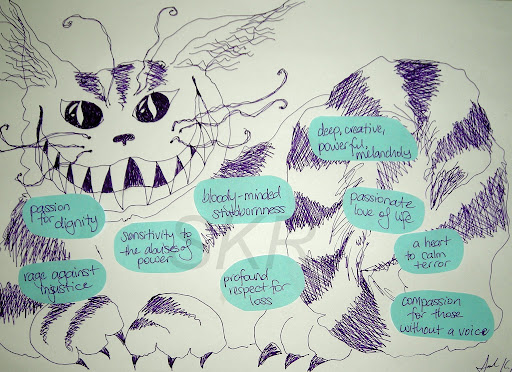 deep, creative,
powerful,
melancholy
bloody-minded
stubbornness
passionate
love of life
passion
for dignity
sensitivity to
the abuses of
power
a heart
to calm
terror
rage against
injustice
profound
respect for
loss
compassion
for those
without a voice
SKR